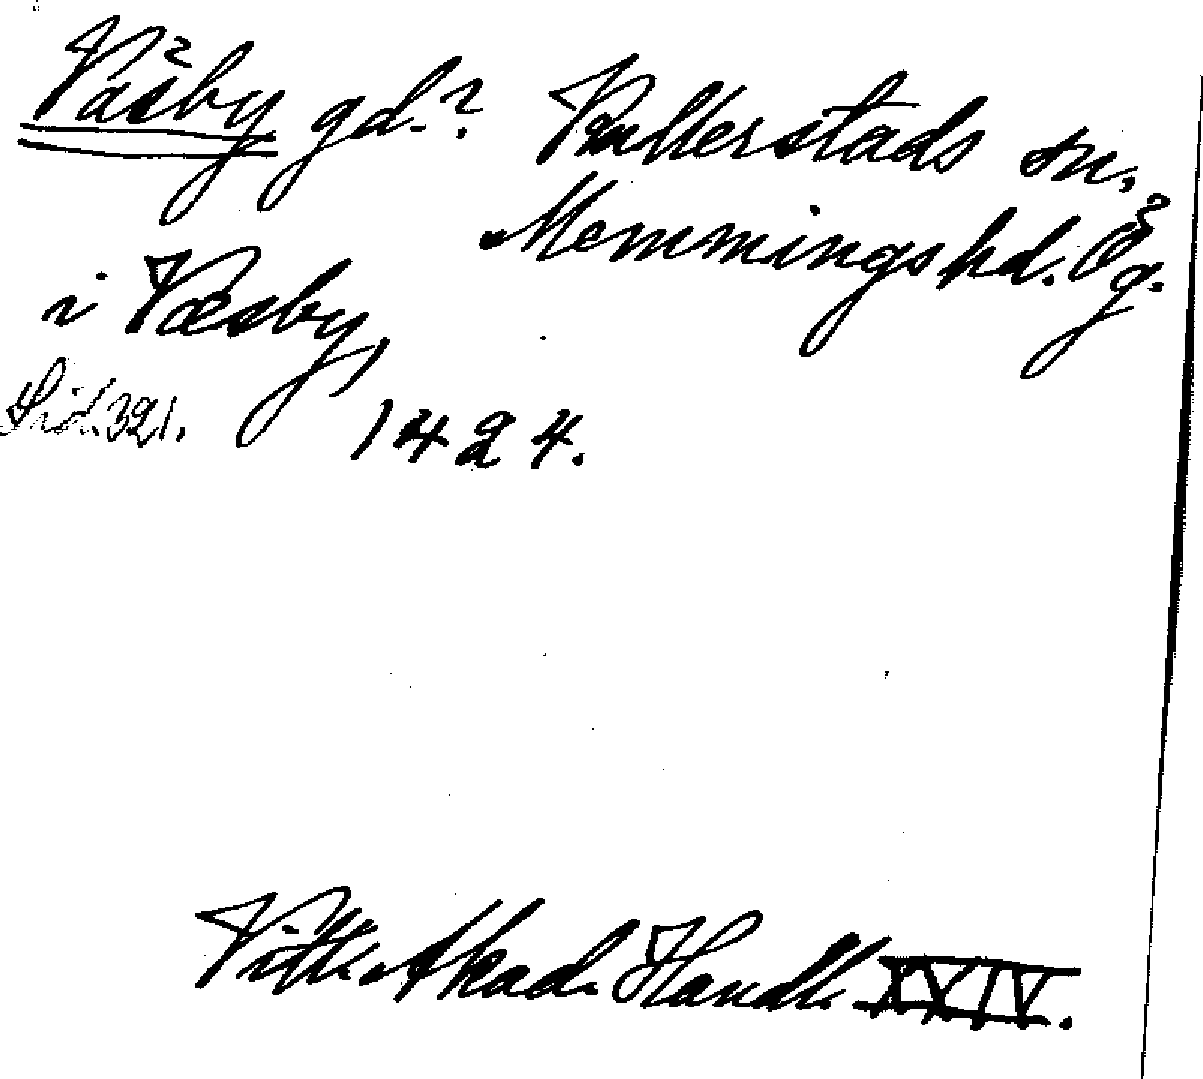 Väsby gd.? Kullerstads sn,
Memmings hd. Ög.
i Væsby,
Sid. 321. 1424.
Vitt. Akad. Handl. XXIV.